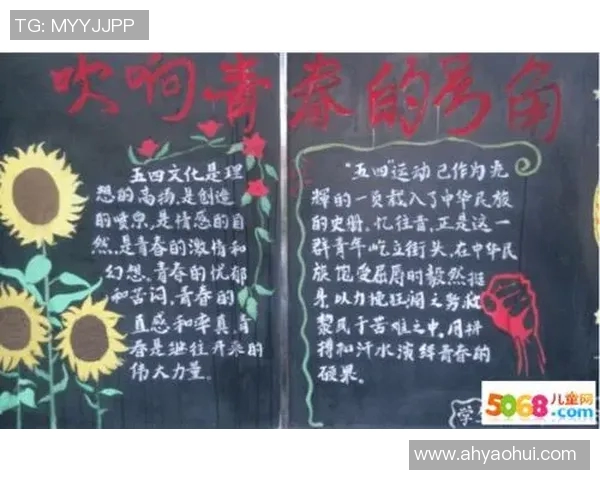 TG: MYYJJPP
吹响青春的号角
五四文化是理
想的高扬,是创造
的喷泉,是情感的自
然,是青春的激情和
幻想。青春的忧郁
和苦闷,青春的
直感和率真,青
春是继往开来的
伟大力量。
"五四"运动已作为光
辉的一页载入了中华民族
的史册。忆往昔,正是这一
群青年屹立街头,在中华民
族饱受屈辱时毅然挺
身,以力挽狂澜之势救
黎民于苦难之中,用拼
搏和汗水演绎青春的
硕果。
学
5068儿童网
.com
www.ahyaohui.com